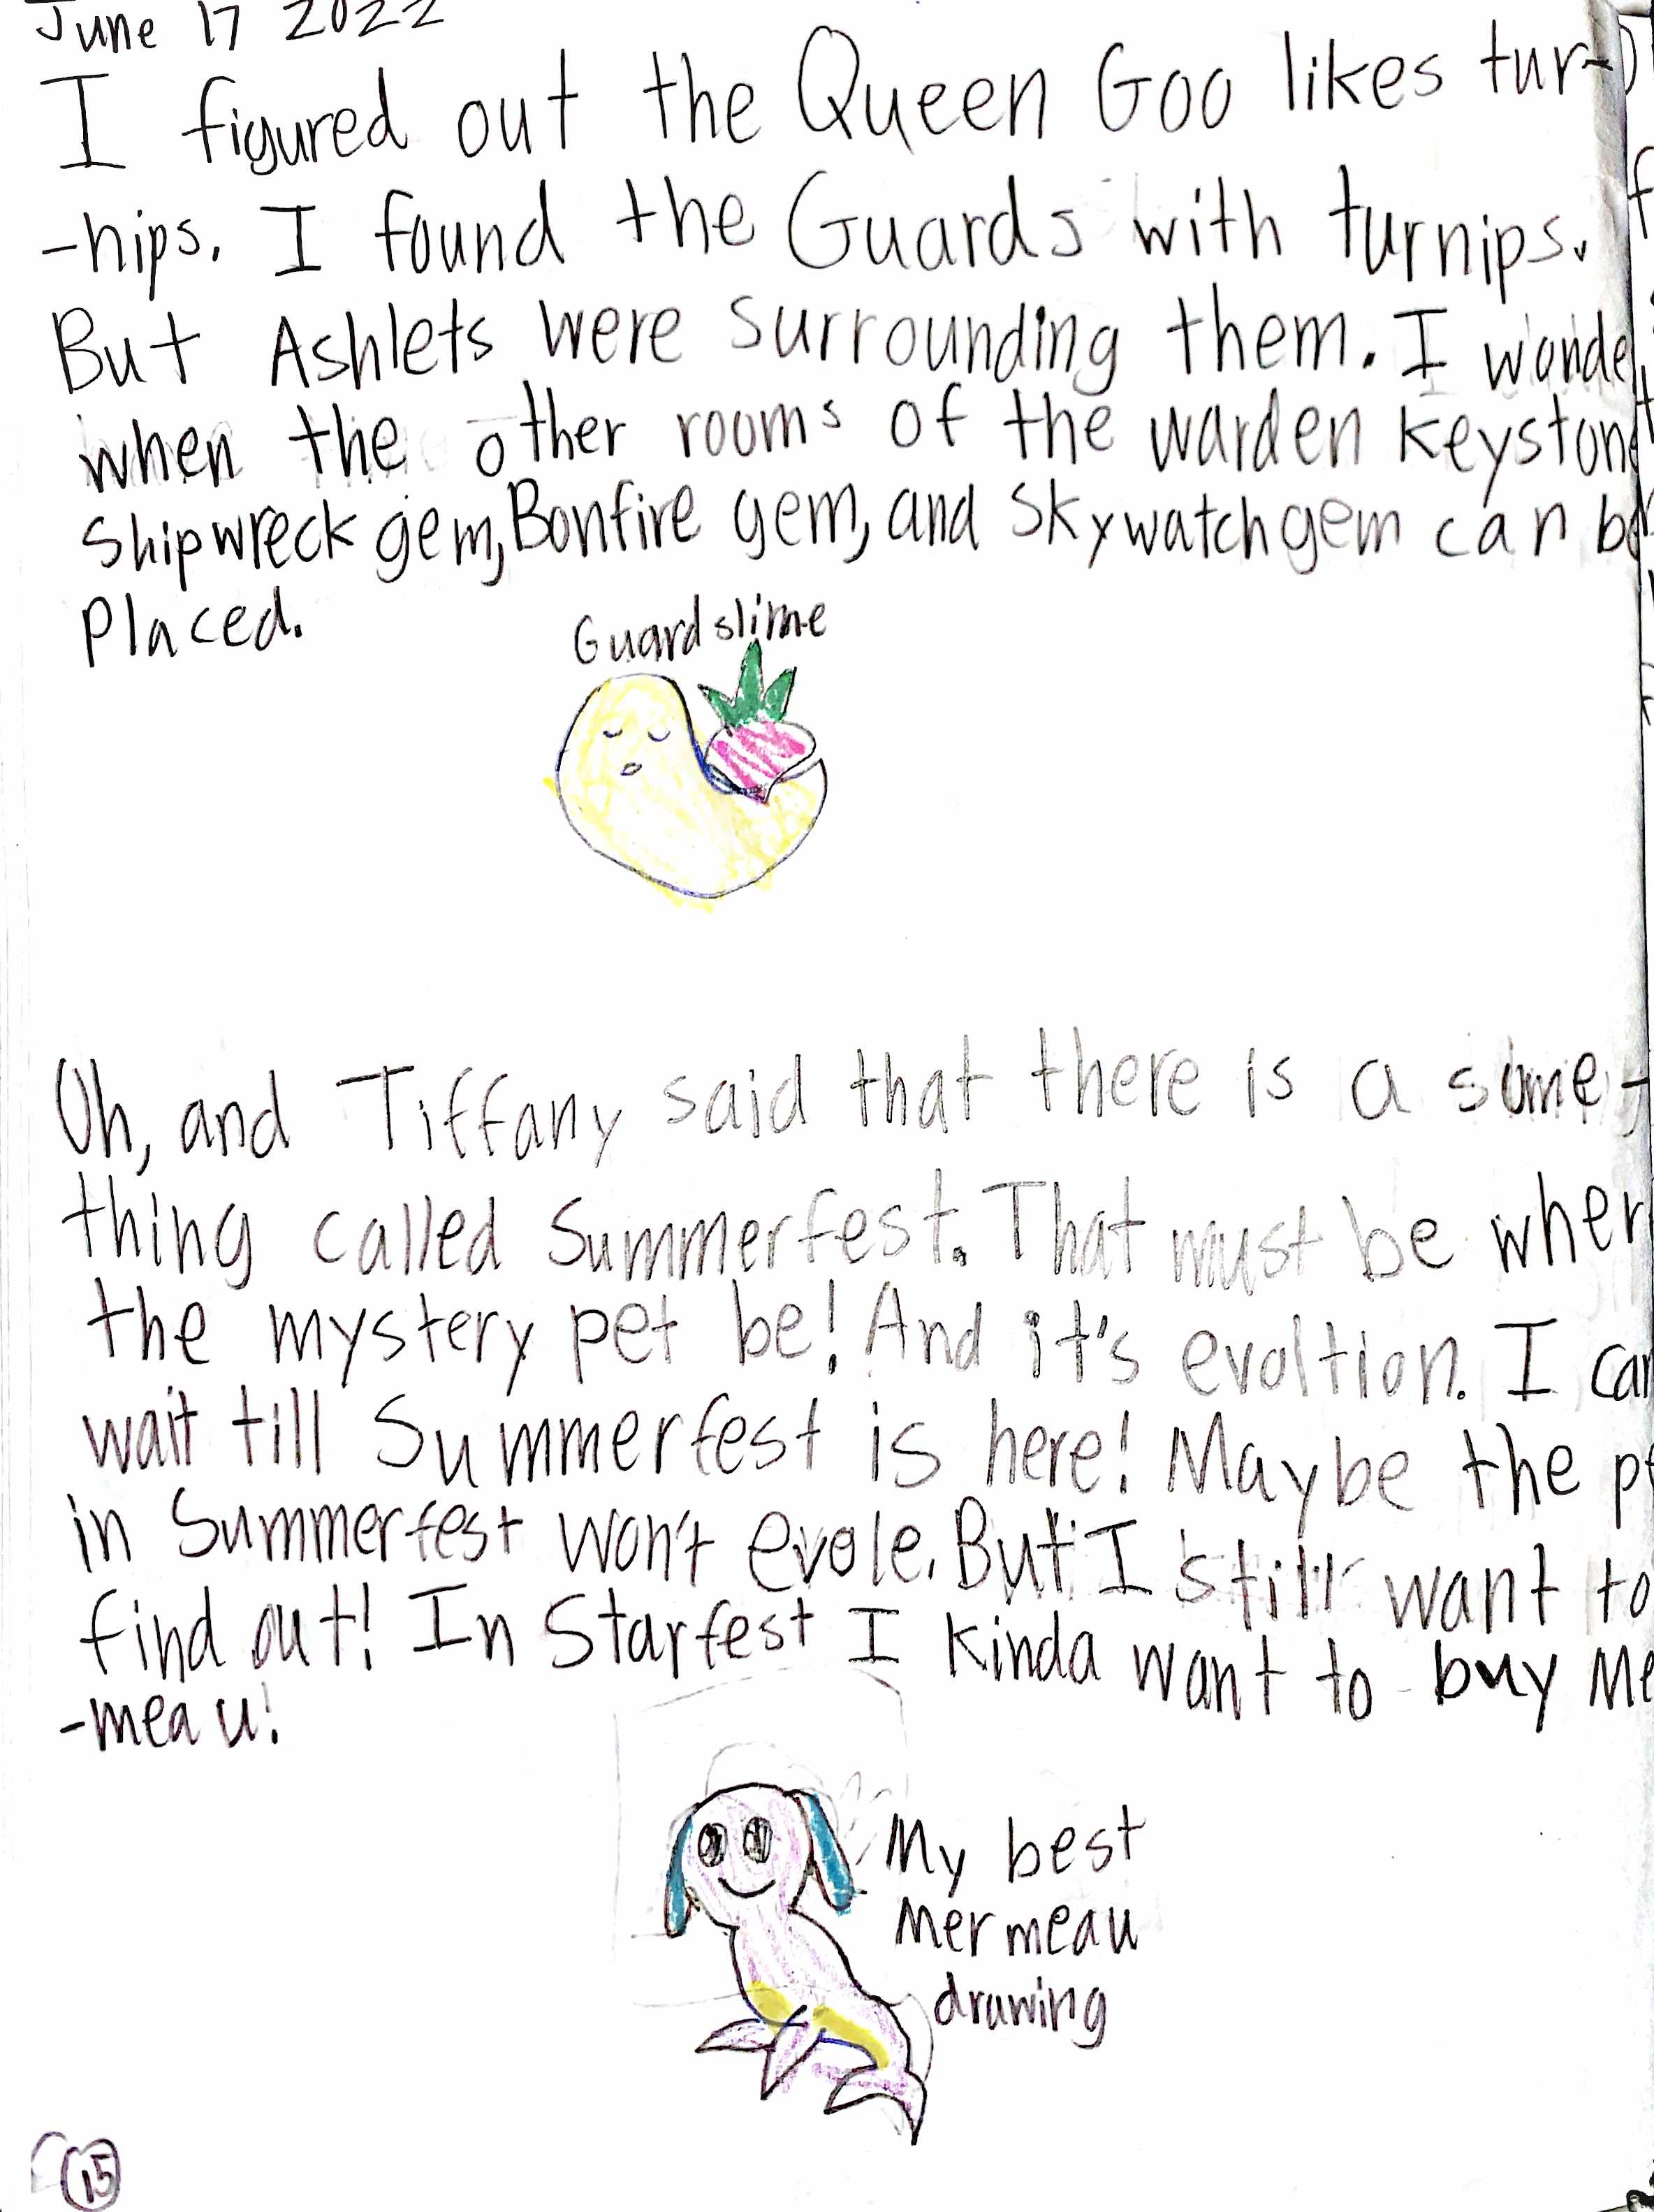 June 17 2022
I figured out the Queen Goo likes tur-
-nips. I found the Guards with turnips.
But Ashlets were surrounding them. I wonde
when the other rooms of the warden keystone
shipwreck gem, Bonfire gem, and Skywatch gem can be
placed.
Guard slime
Oh, and Tiffany said that there is a some-
thing called Summerfest. That must be wher
the mystery pet be! And it's evoltion. I can
wait till Summerfest is here! Maybe the pe
in Summerfest won't evole. But I still want to
find out! In Starfest I kinda want to buy Me
-meau!
My best
Mermeau
drawing
15